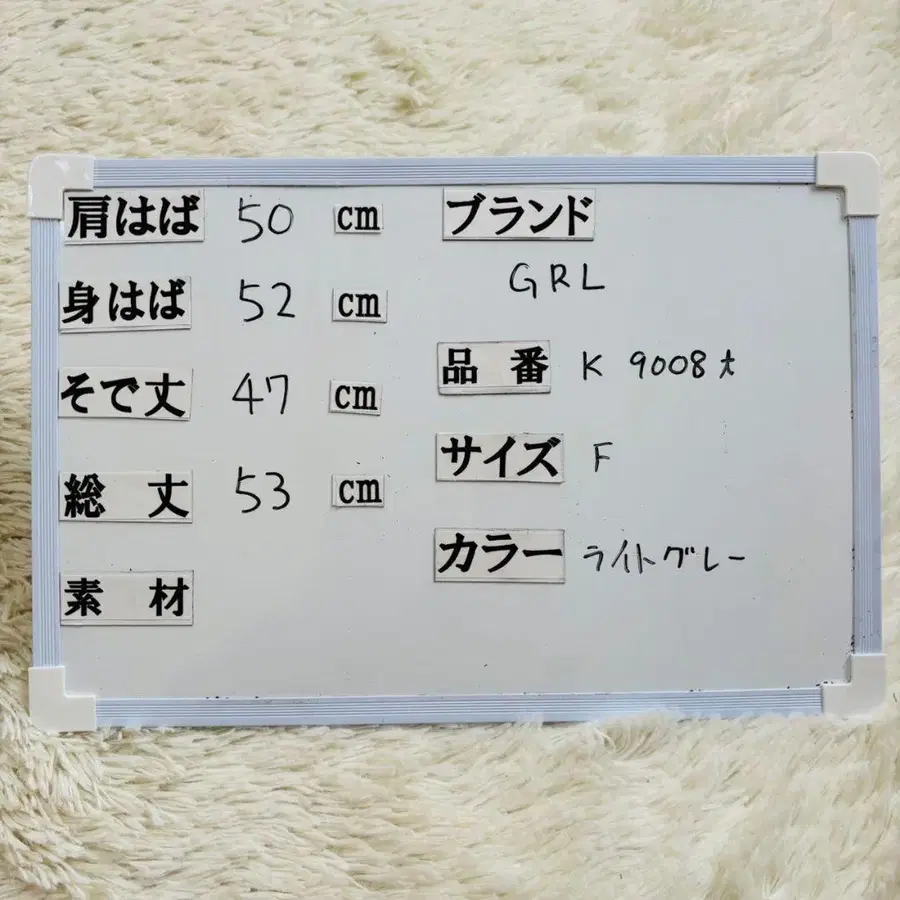 肩はば 50 cm
身はば 52 cm
そで丈 47 cm
総丈 53 cm
素材
ブランド
GRL
品番 K 9008大
サイズ F
カラー ライトグレー